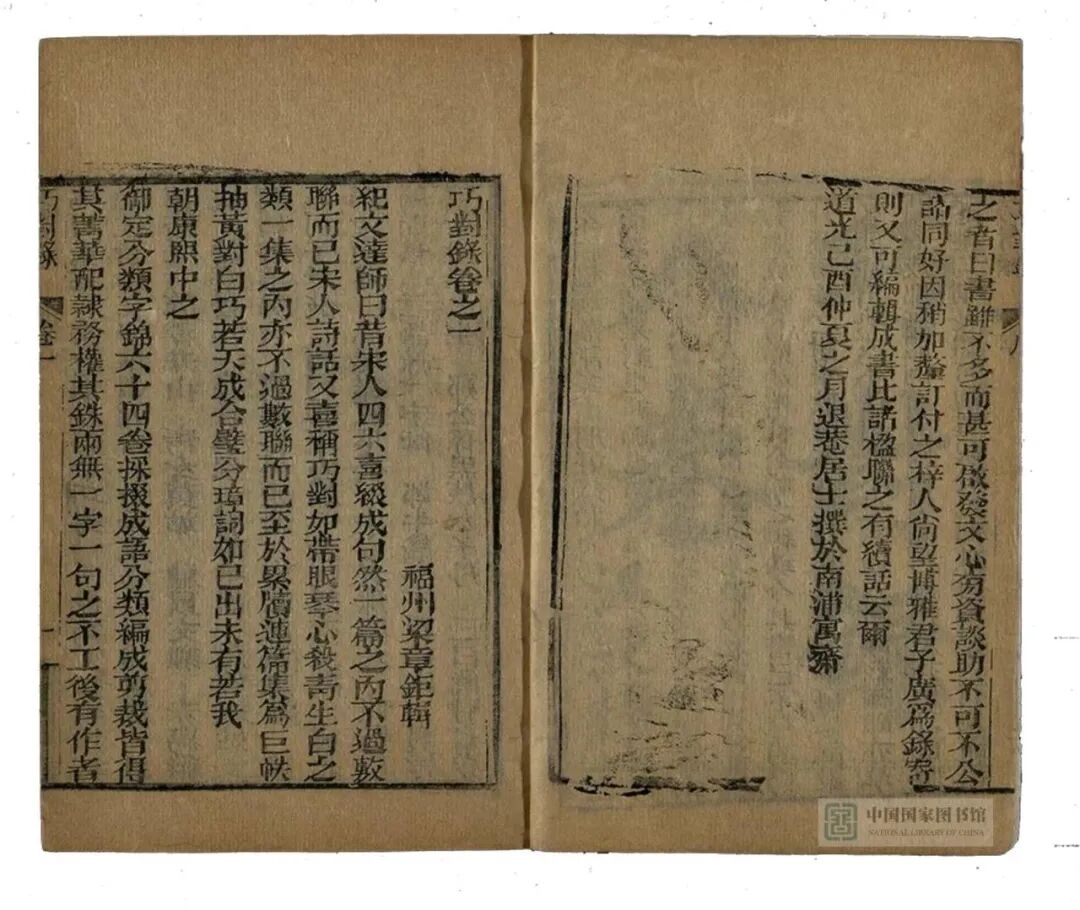 之者曰書雖不多而甚可啟發文心旁資談助不可不公
諸同好因稍加釐訂付之梓人尚望博雅君子廣為錄寄
則又可編輯成書比諸楹聯之有續話云爾
道光己酉仲夏之月退菴居士撰於南浦寓齋
巧對錄卷之一
福州梁章鉅輯
紀文達師曰昔宋人四六喜綴成句然一篇之內不過數
聯而已宋人詩話又喜稱巧對如帶眼琴心殺青生白之
類一集之內亦不過數聯而已至於累牘連篇集為巨帙
抽黃對白巧若天成合璧分璋詞如已出未有若我
朝康熙中之
御定分類字錦六十四卷採掇成語分類編成剪裁皆得
其菁華配隸務權其銖兩無一字一句之不工後有作者
巧對錄
卷一
一
中国国家图书馆
NATIONAL LIBRARY OF CHINA